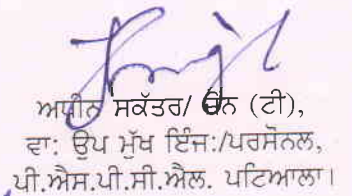 ਅਧੀਨ ਸਕੱਤਰ/ ਓਨ (ਟੀ),
ਵਾ: ਉਪ ਮੁੱਖ ਇੰਜ:/ਪਰਸੋਨਲ,
ਪੀ.ਐਸ.ਪੀ.ਸੀ.ਐਲ. ਪਟਿਆਲਾ।